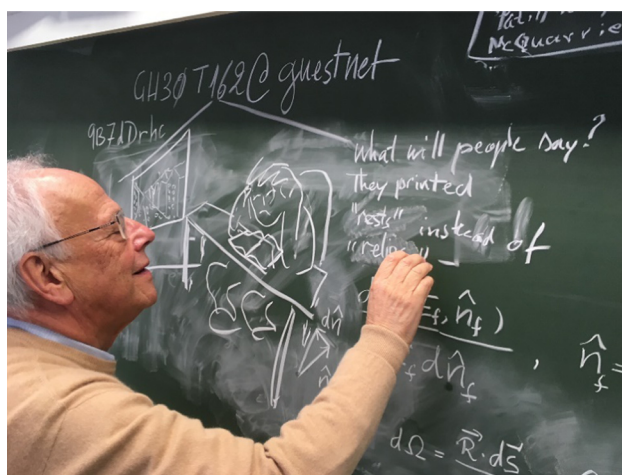 McQuarrie
GH3ØT162@guestnet
9B7dDrhc
What will people say?
They printed
"rests" instead of
dn̂
, n̂_f)
dn̂_f , n̂_f =
dΩ = R⃗·ds⃗